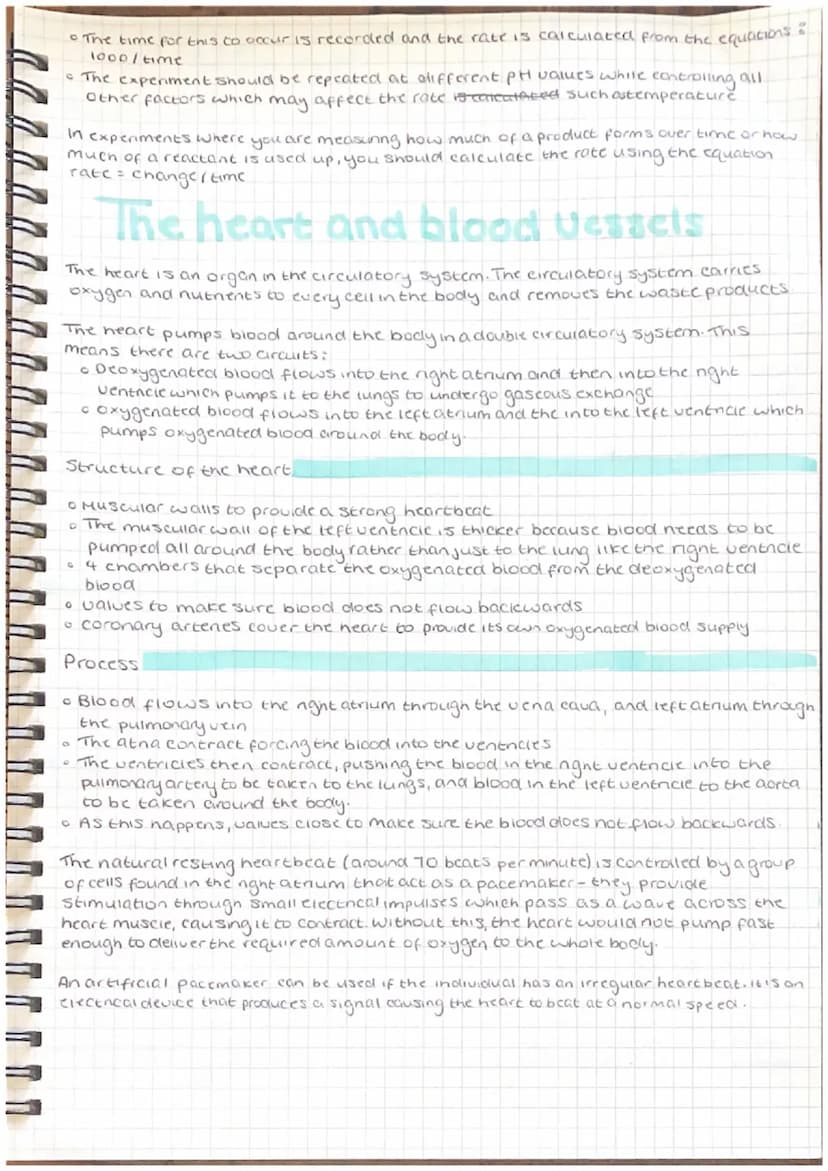 • The time for this to occur is recorded and the rate is calculated from the equations:
1000/time
• The experiment should be repeated at different pH values while controlling all
other factors which may affect the rate is calculated such as temperature
In experiments where you are measuring how much of a product forms over time or how
much of a reactant is used up, you should calculate the rate using the equation
rate = change/time
The heart and blood vessels
The heart is an organ in the circulatory system. The circulatory system carries
oxygen and nutrients to every cell in the body and removes the waste products
The heart pumps blood around the body in a double circulatory system. This
means there are two circuits:
• Deoxygenated blood flows into the right atrium and then into the right
ventricle which pumps it to the lungs to undergo gaseous exchange
• Oxygenated blood flows into the left atrium and the into the left ventricle which
pumps oxygenated blood around the body.
Structure of the heart
• Muscular walls to provide a strong heartbeat
• The muscular wall of the left ventricle is thicker because blood needs to be
pumped all around the body rather than just to the lung like the right ventricle
• 4 chambers that separate the oxygenated blood from the deoxygenated
blood
• Valves to make sure blood does not flow backwards
• Coronary arteries cover the heart to provide its own oxygenated blood supply
Process
• Blood flows into the right atrium through the vena cava, and left atrium through
the pulmonary vein
• The atria contract forcing the blood into the ventricles
• The ventricles then contract, pushing the blood in the right ventricle into the
pulmonary artery to be taken to the lungs, and blood in the left ventricle to the aorta
to be taken around the body.
• As this happens, valves close to make sure the blood does not flow backwards.
The natural resting heartbeat (around 70 beats per minute) is controlled by a group
of cells found in the right atrium that act as a pacemaker - they provide
stimulation through small electrical impulses which pass as a wave across the
heart muscle, causing it to contract. Without this, the heart would not pump fast
enough to deliver the required amount of oxygen to the whole body.
An artificial pacemaker can be used if the individual has an irregular heartbeat. It is an
electrical device that produces a signal causing the heart to beat at a normal speed.